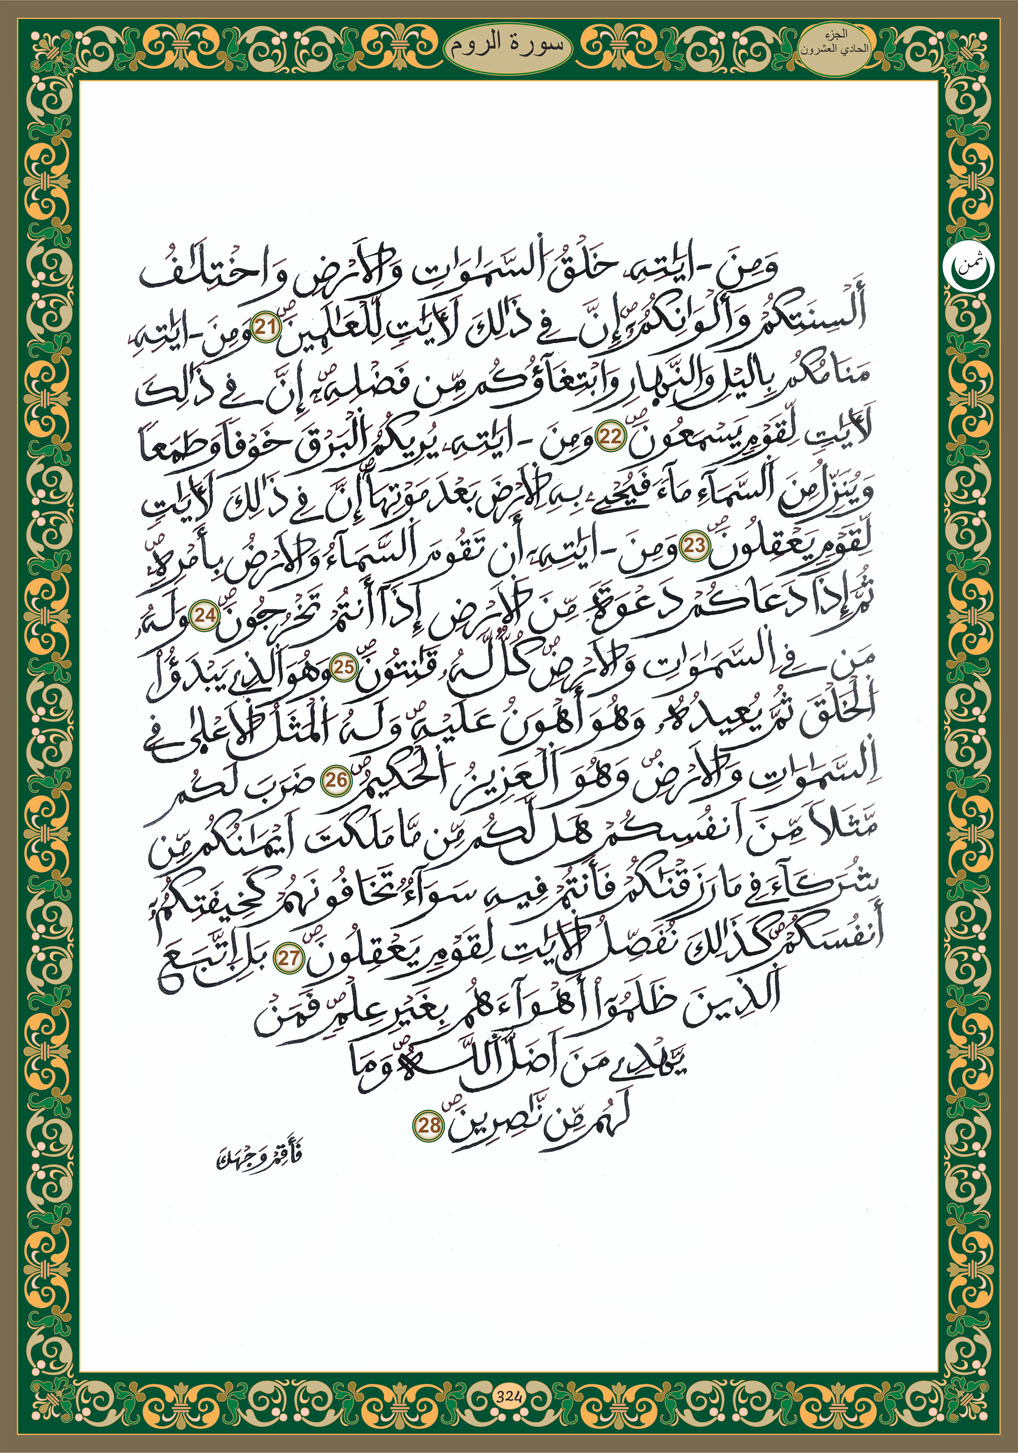 سورة الروم
الجزء
الحادي العشرون
ثمن
وَمِنَ ـ ايَٰتِهِۦ خَلْقُ اُ۬لسَّمَٰوَٰتِ وَالَارْضِ وَاخْتِلَٰفُ
أَلْسِنَتِكُمْ وَأَلْوَٰنِكُمُۥٓ إِنَّ فِے ذَٰلِكَ لَأٓيَٰتٖ لِّلْعَٰلَمِينَۖ 21 وَمِنَ ـ ايَٰتِهِۦ
مَنَامُكُم بِاليْلِ وَالنَّه۪ارِ وَابْتِغَآؤُكُم مِّن فَضْلِهِۦٓۖ إِنَّ فِے ذَٰلِكَ
لَأٓيَٰتٖ لِّقَوْمٖ يَسْمَعُونَۖ 22 وَمِنَ ـ ايَٰتِهِۦ يُرِيكُمُ اُ۬لْبَرْقَ خَوْفاٗ وَطَمَعاٗ
وَيُنَزِّلُ مِنَ اَ۬لسَّمَآءِ مَآءٗ فَيُحْيِۦ بِهِ اِ۬لَارْضَ بَعْدَ مَوْتِهَآۖ إِنَّ فِے ذَٰلِكَ لَأٓيَٰتٖ
لِّقَوْمٖ يَعْقِلُونَۖ 23 وَمِنَ ـ ايَٰتِهِۦٓ أَن تَقُومَ اَ۬لسَّمَآءُ وَالَارْضُ بِأَمْرِهِۦۖ
ثُمَّ إِذَا دَعَاكُمْ دَعْوَةٗ مِّنَ اَ۬لَارْضِ إِذَآ أَنتُمْ تَخْرُجُونَۖ 24 وَلَهُۥ
مَن فِے اِ۬لسَّمَٰوَٰتِ وَالَارْضِۖ كُلّٞ لَّهُۥ قَٰنِتُونَۖ 25 وَهُوَ اَ۬لذِے يَبْدَؤُاْ
اُ۬لْخَلْقَ ثُمَّ يُعِيدُهُۥ وَهُوَ أَهْوَنُ عَلَيْهِۖ وَلَهُ اُ۬لْمَثَلُ اُ۬لَاعْل۪يٰ فِے
اِ۬لسَّمَٰوَٰتِ وَالَارْضِۖ وَهُوَ اَ۬لْعَزِيزُ اُ۬لْحَكِيمُۖ 26 ضَرَبَ لَكُم
مَّثَلاٗ مِّنَ اَنفُسِكُمْ هَل لَّكُم مِّن مَّا مَلَكَتَ اَيْمَٰنُكُم مِّن
شُرَكَآءَ فِے مَا رَزَقْنَٰكُمْ فَأَنتُمْ فِيهِ سَوَآءٞ تَخَافُونَهُمْ كَخِيفَتِكُمُۥٓ
أَنفُسَكُمْۖ كَذَٰلِكَ نُفَصِّلُ اُ۬لَايَٰتِ لِقَوْمٖ يَعْقِلُونَۖ 27 بَلِ اِ۪تَّبَعَ
اَ۬لذِينَ ظَلَمُوٓاْ أَهْوَآءَهُم بِغَيْرِ عِلْمٖۖ فَمَنْ
يَّهْدِے مَنَ اَضَلَّ اَ۬للَّهُۖ وَمَا
لَهُم مِّن نَّٰصِرِينَۖ 28
فَأَقِمْ وَجْهَكَ
324